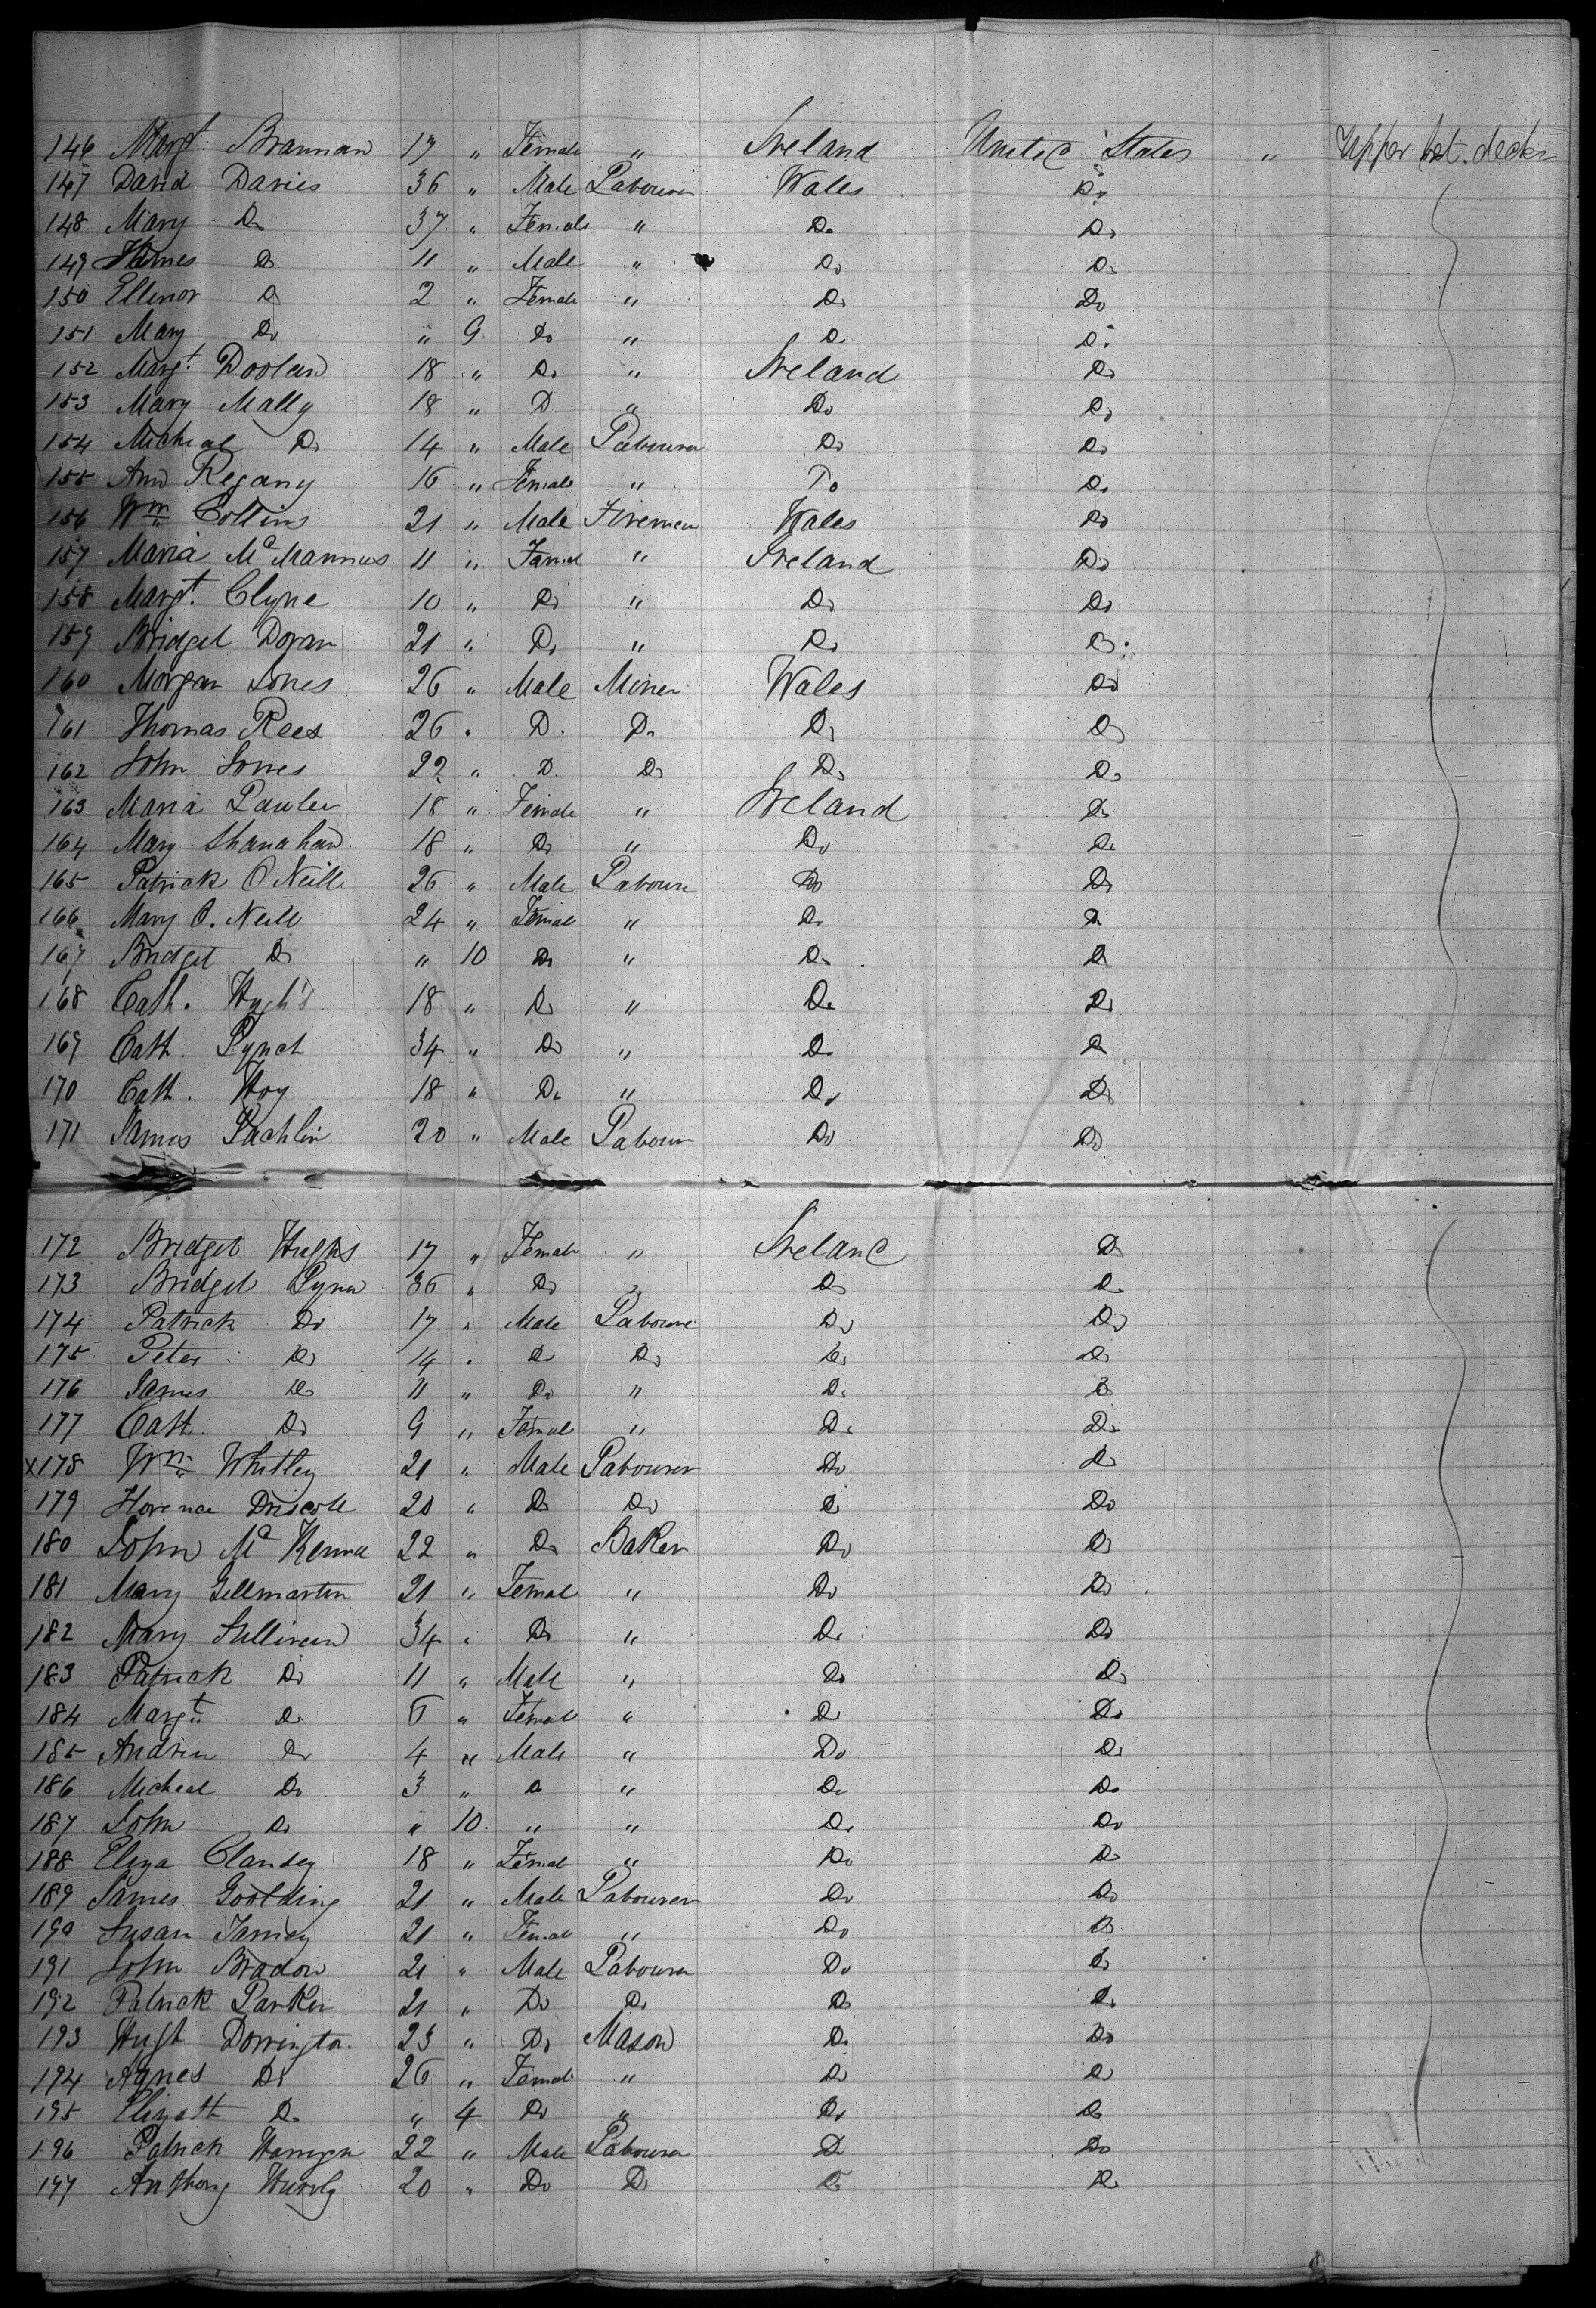 146 Margt Brannan 17 " Female " Ireland United States " Upper bet. decks
147 David Davies 36 " Male Labourer Wales Do
148 Mary Do 37 " Female " Do Do
149 James Do 11 " Male " Do Do
150 Ellenor Do 2 " Female " Do Do
151 Mary Do " 9 Do " Do Do
152 Margt. Doolan 18 " Do " Ireland Do
153 Mary Mally 18 " D " Do Do
154 Micheal Do 14 " Male Labourer Do Do
155 Ann Regany 16 " Female " Do Do
156 Wm Collins 21 " Male Firemen Wales Do
157 Maria McMannus 11 " Femal " Ireland Do
158 Margt. Clyne 10 " Do " Do Do
159 Bridget Doran 21 " Do " Do Do
160 Morgan Jones 26 " Male Miner Wales Do
161 Thomas Rees 26 " D. Do Do Do
162 John Jones 22 " D. Do Do Do
163 Maria Lawler 18 " Female " Ireland Do
164 Mary Shanahan 18 " Do " Do Do
165 Patrick O Neill 26 " Male Laboure Do Do
166 Mary O. Neill 24 " Femal " Do Do
167 Bridget Do " 10 Do " Do Do
168 Cath. Hugh's 18 " Do " Do Do
169 Cath. Lynch 34 " Do " Do Do
170 Cath. Hoy 18 " Do " Do Do
171 James Lachlin 20 " Male Labour Do Do
172 Bridget Hughs 17 " Female " Ireland Do
173 Bridget 36 " Do " Do Do
174 Patrick Do 17 " Male Laboure Do Do
175 Peter Do 14 " Do Do Do Do
176 James Do 11 " Do " Do Do
177 Cath. Do 9 " Female " Do Do
x178 Wm Whitley 21 " Male Labourer Do Do
179 Florence Driscoll 20 " Do Do Do Do
180 John Mc Kenna 22 " Do Baker Do Do
181 Mary Gellmartin 21 " Femal " Do Do
182 Mary Sullivan 34 " Do " Do Do
183 Patrick Do 11 " Male " Do Do
184 Margt Do 6 " Femal " Do Do
185 Andrew Do 4 " Male " Do Do
186 Micheal Do 3 " Do " Do Do
187 John Do " 10. " " Do Do
188 Eliza Clansey 18 " Femal " Do Do
189 James Goolding 21 " Male Labourer Do Do
190 Susan 21 " Female " Do Do
191 John Bradon 21 " Male Labourer Do Do
192 Patrick Parker 21 " Do Do Do Do
193 Hugh Dorrington 23 " Do Mason Do Do
194 Agnes Do 26 " Female " Do Do
195 Elizath Do " 4 Do " Do Do
196 Patrick 22 " Male Labourer Do Do
197 Anthony 20 " Do Do Do Do